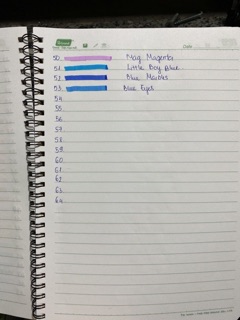 50. Mag Magenta
51. Little Boy Blue
52. Blue Marbles
53. Blue Eyes
54.
55.
56.
57.
58.
59.
60.
61.
62.
63.
64.